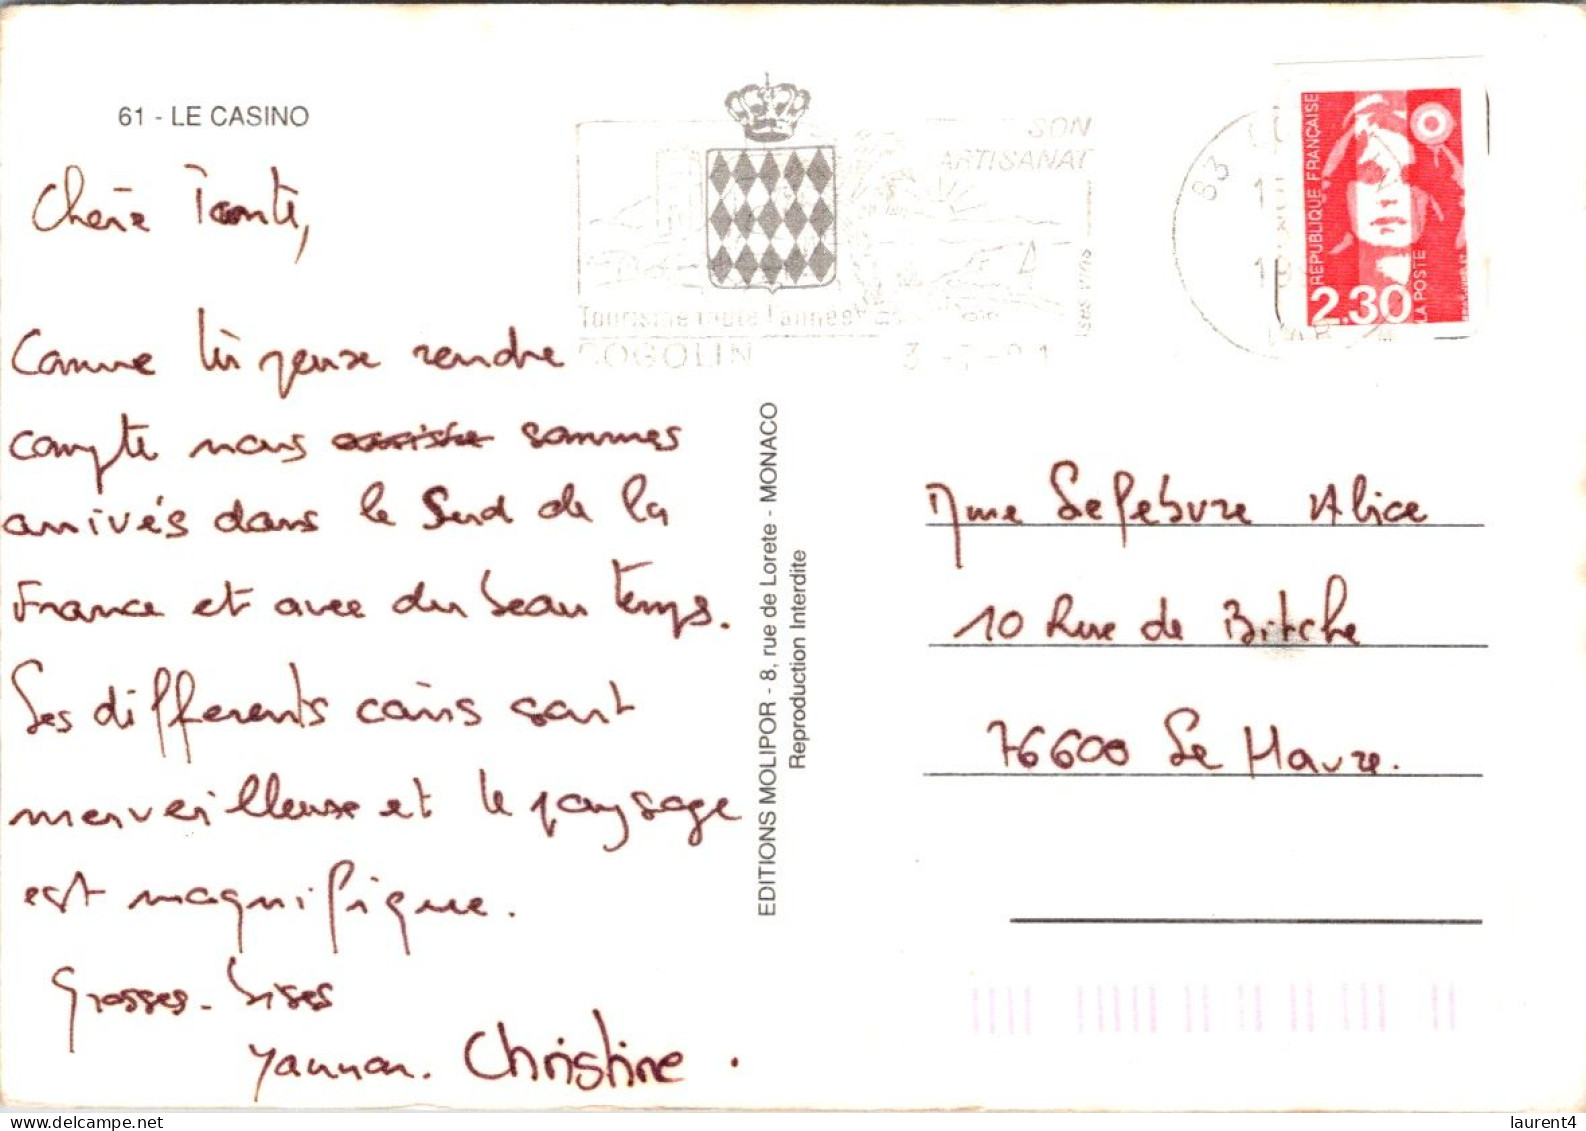 61 - LE CASINO
SON
ARTISANAT
Tourisme toute l'année
COGOLIN
83
REPUBLIQUE FRANÇAISE
2,30
LA POSTE
Chère Tante,
Comme tu peux rendre
compte nous sommes
arrivés dans le Sud de la
France et avec du beau temps.
Les differents coins sont
merveilleux et le paysage
est magnifique.
Grosses. bises
Yannan. Christine.
EDITIONS MOLIPOR - 8, rue de Lorete - MONACO
Reproduction Interdite
Mme Lefebvre Alice
10 Rue de Bitche
76600 Le Havre.
laurent4